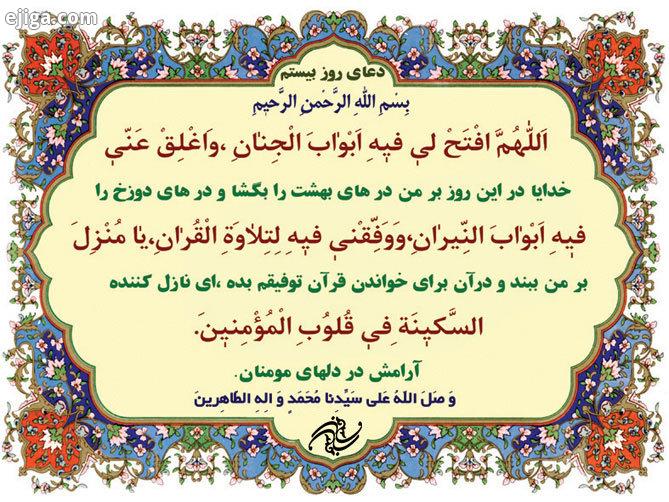 ejiga.com
دعای روز بیستم
بِسْمِ اللهِ الرَّحْمنِ الرَّحیمِ
اَللّٰهُمَّ افْتَحْ لی فیهِ اَبْوٰابَ الْجِنٰانِ ،وَاَغْلِقْ عَنّی
خدایا در این روز بر من در های بهشت را بگشا و در های دوزخ را
فیهِ اَبْوٰابَ النّیرٰانِ،وَوَفِّقْنی فیهِ لِتِلٰاوَةِ الْقُرٰانِ،یٰا مُنْزِلَ
بر من ببند و درآن برای خواندن قرآن توفیقم بده ،ای نازل کننده
السَّکینَة فِی قُلُوبِ الْمُؤْمِنینَ.
آرامش در دلهای مومنان.
وَ صَلَ اللهُ عَلی سَیِّدنا مُحَمَدٍ وَ الِهِ الطّاهِرینَ